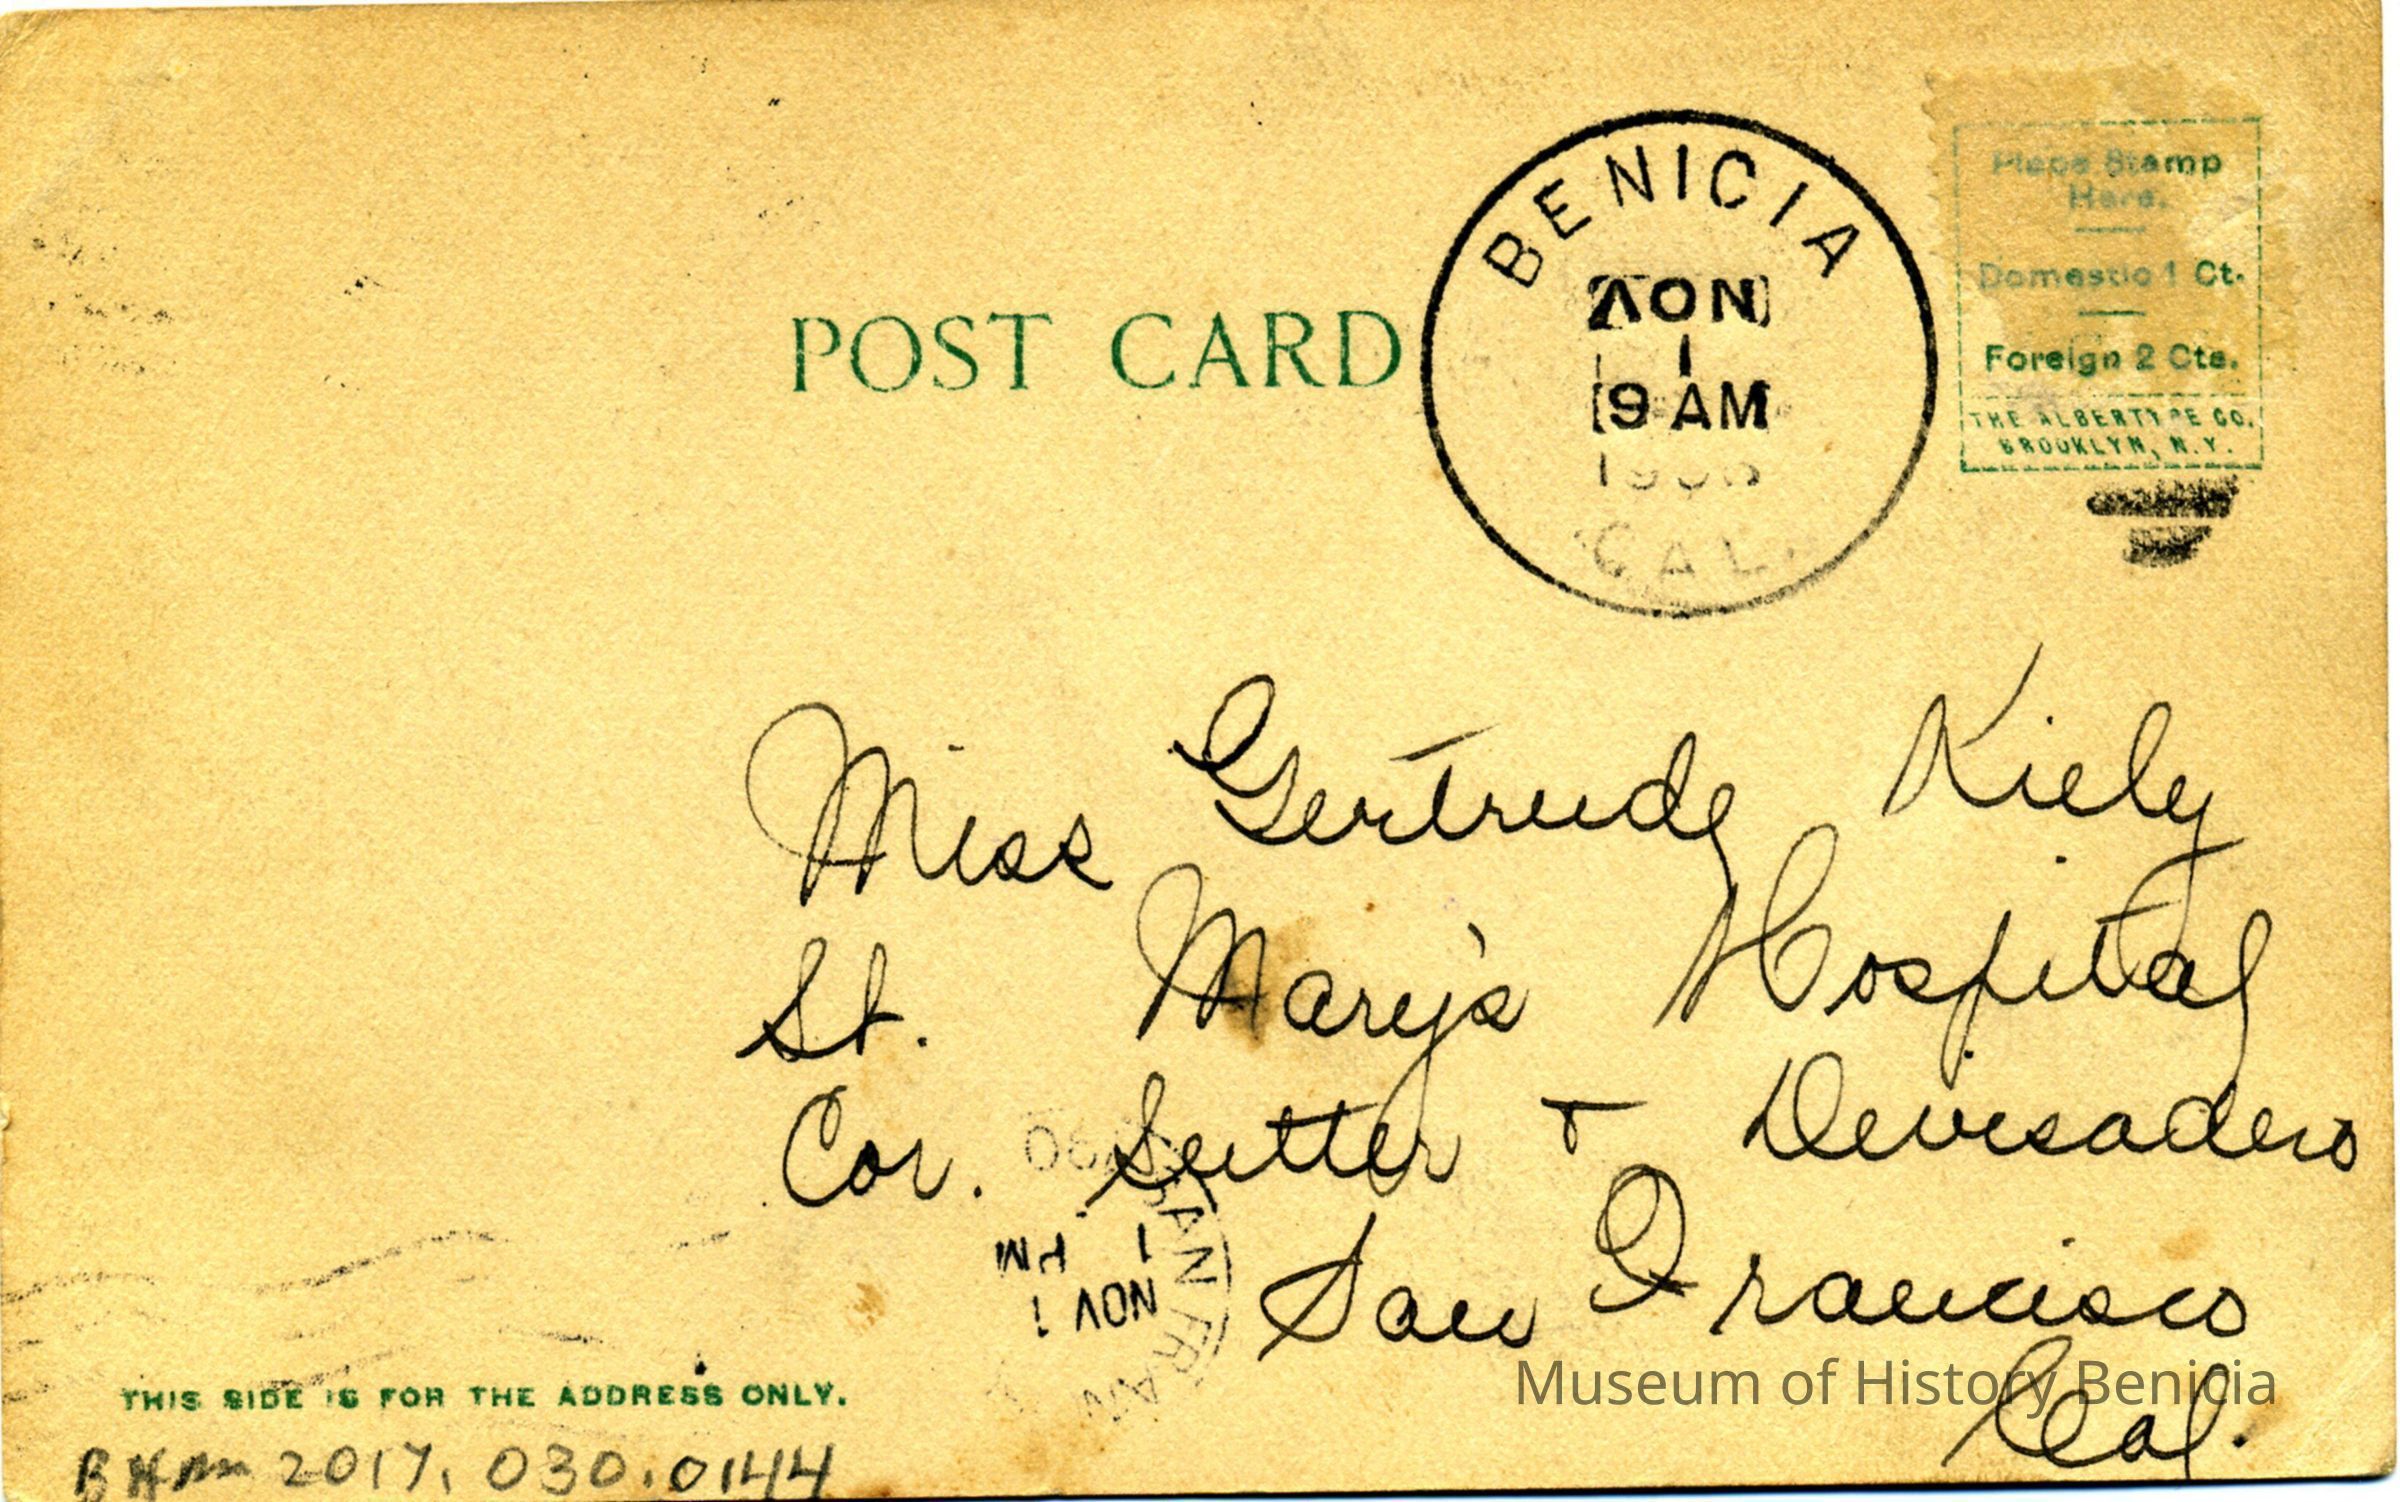 POST CARD
BENICIA
NOV
1
9 AM
CAL.
Place Stamp
Here.
Domestic 1 Ct.
Foreign 2 Cts.
THE ALBERTYPE CO.
BROOKLYN, N.Y.
Miss Gertrude Kiely
St. Mary's Hospital
Cor. Sutter & Devisadero
San Francisco
Cal.
SAN FRAN
NOV 1
1 PM
THIS SIDE IS FOR THE ADDRESS ONLY.
Museum of History Benicia
BHM 2017.030.0144